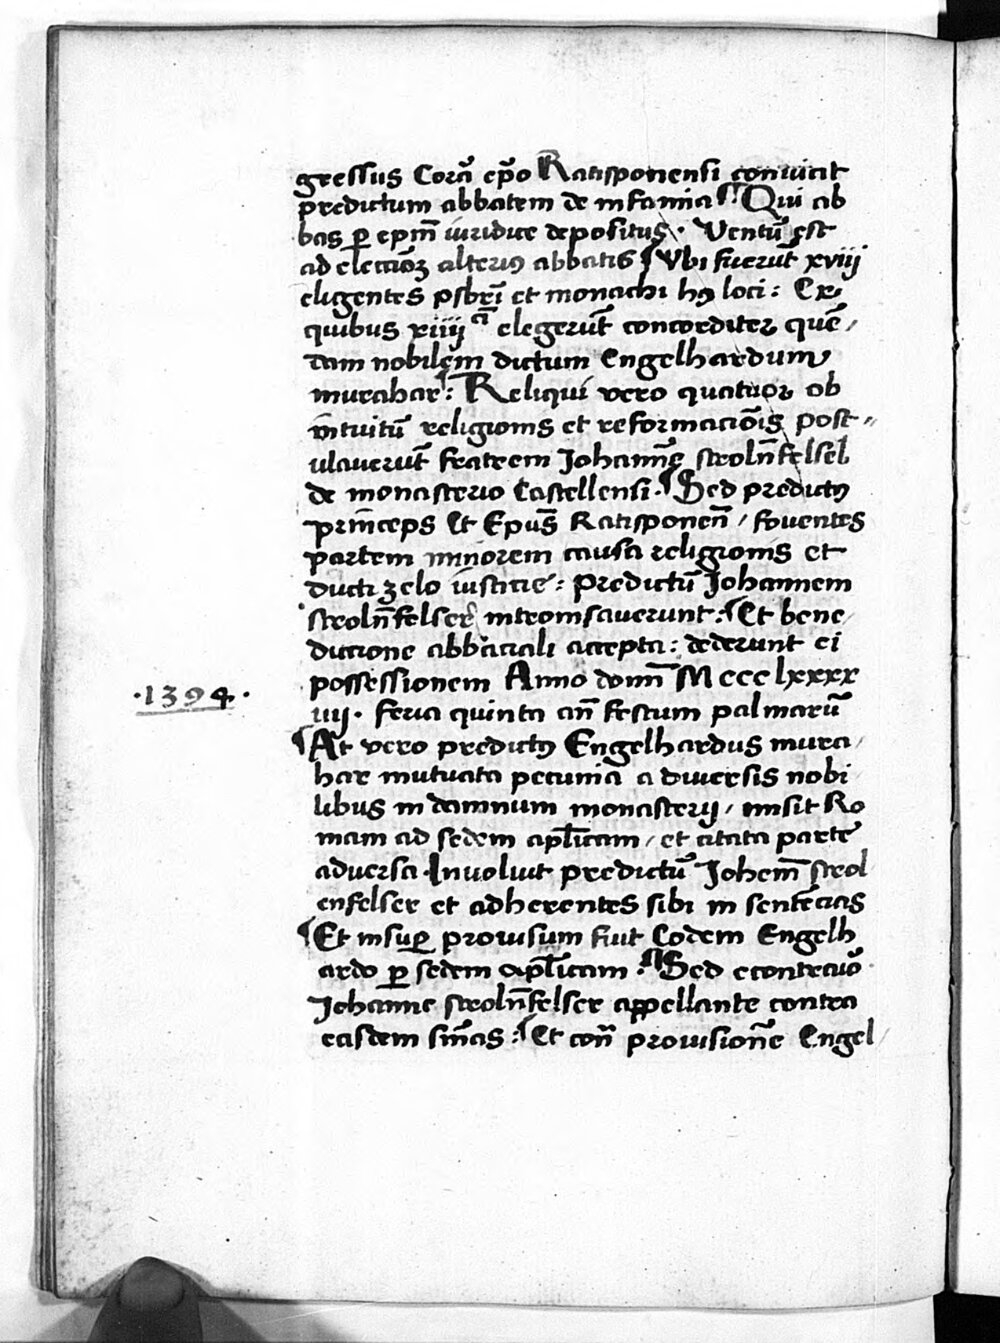 gressus Corā ep̄o Ratisponensi conuicit
predictum abbatem de infamia ¶ Qui ab
bas ꝑ ep̄m̄ iuridice depositus · Ventū est
ad elecciōꝫ alteriꝰ abbatis ¶ Vbi fuerūt xviij
eligentes p̄sbr̄i et monachi hꝰ loci : Ex
quibus xiiij elegerūt concorditer quē/
dam nobilem dictum Engelhardum
murahar : Reliqui vero quatuor ob
intuitū religionis et reformaciōis post〃
ulauerūt fratrem Johannē stroln̄felsel
de monasterio Castellensi · ¶ Sed predictꝰ
princeps Et Epūs Ratisponen̄ / fouentes
partem minorem causa religionis et
ducti zelo iusticie : Predictū Johannem
stroln̄felser intronisauerunt : ¶ Et bene/
diccione abbaciali accepta : dederunt ei
possessionem Anno domī M cccc lxxxx
iiij · feria quinta an̄ festum palmarū
·1394·
¶ At vero predictꝰ Engelhardus mura/
har mutuata pecunia a diuersis nobi
libus in damnum monasterij / misit Ro
mam ad sedem ap̄licam / et citata parte
aduersa · Inuoluit predictū Johem̄ strol
enfelser et adherentes sibi in sentēcias
¶ Et insuꝑ prouisum fuit Eodem Engelh
ardo ꝑ sedem ap̄licam : ¶ Sed econtrauō
Johanne stroln̄felser appellante contra
easdem sn̄ias : ¶ Et con̄ prouisionē Engel/